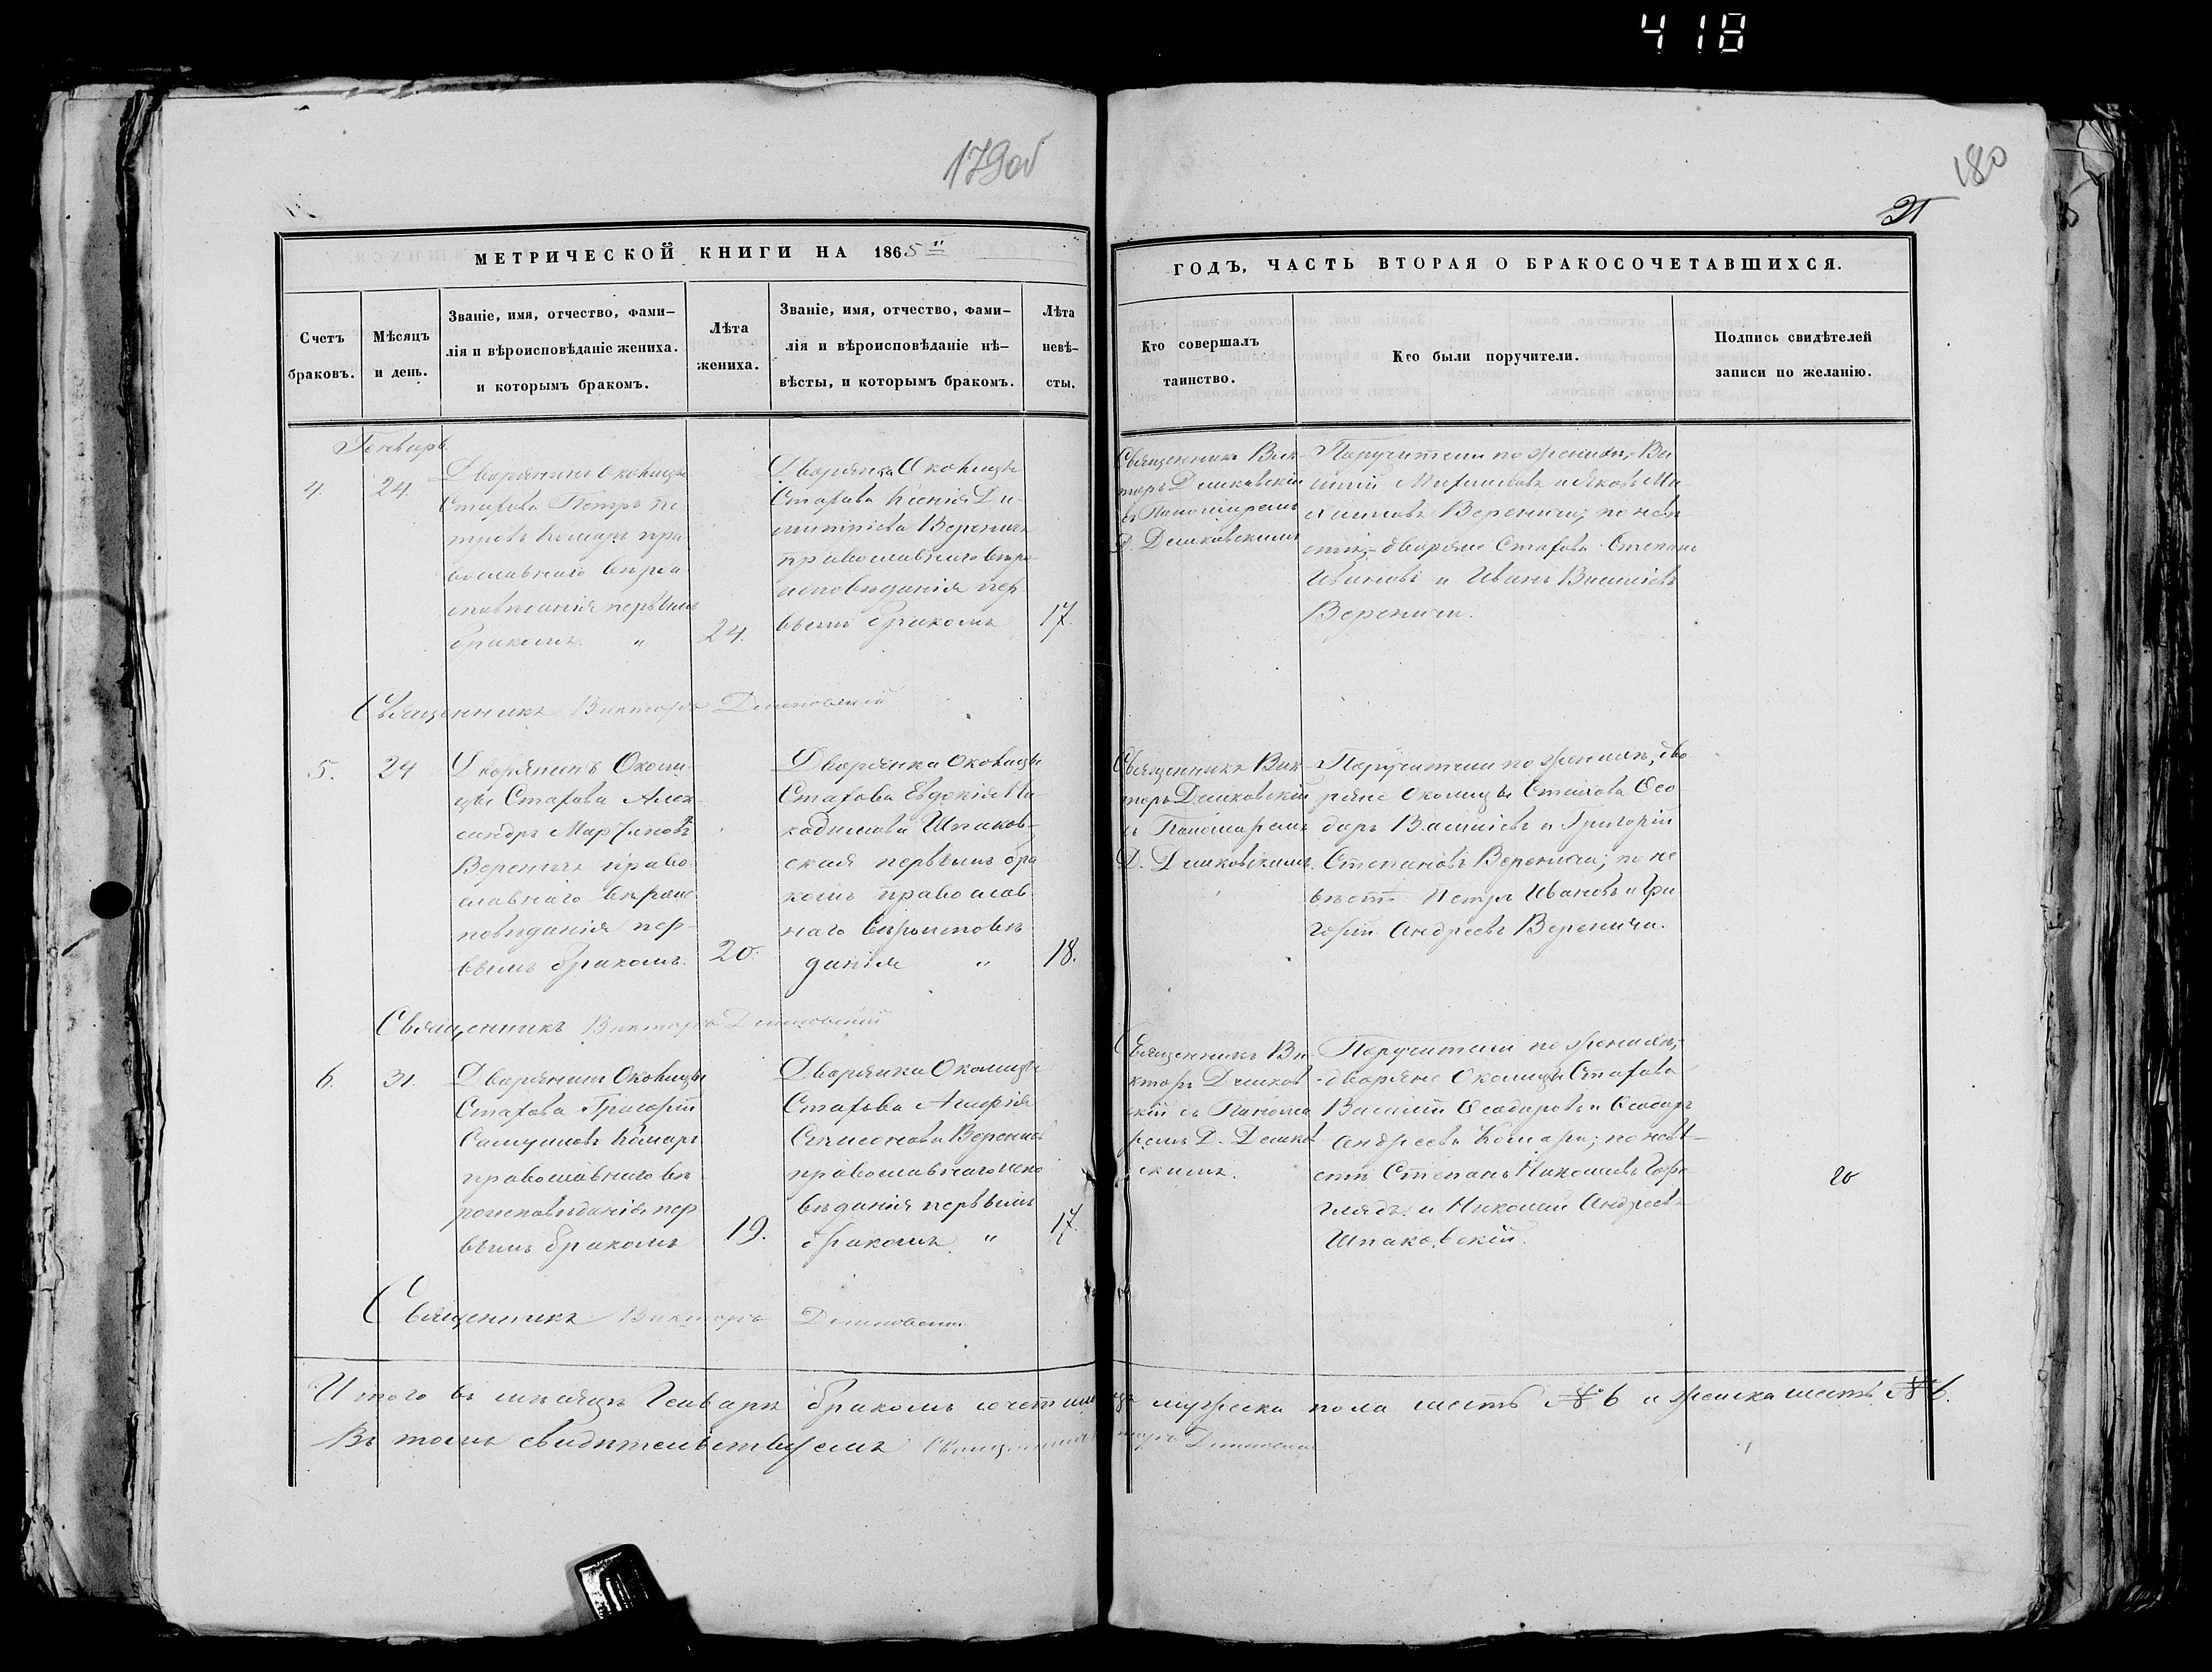 418
179об
180
21
МЕТРИЧЕСКОЙ КНИГИ НА 1865
ГОДЪ, ЧАСТЬ ВТОРАЯ О БРАКОСОЧЕТАВШИХСЯ.
Счетъ
браковъ.
Мѣсяцъ
и день.
Званіе, имя, отчество, фами–
лія и вѣроисповѣданіе жениха.
и которымъ бракомъ.
Лѣта
жениха.
Званіе, имя, отчество, фами–
лія и вѣроисповѣданіе нѣ–
вѣсты, и которымъ бракомъ.
Лѣта
невѣ–
сты.
Кто совершалъ
таинство.
Кто были поручители.
Подпись свидѣтелей
записи по желанію.
Генварь
4.
24.
Дворянинъ Околицы
Стахова Петръ Пе
тровъ Комаръ пра
вославнаго вѣрои
сповѣданія первымъ
бракомъ. "
24.
Дворянка Околицы
Стахова Ксенія Ди–
митріева Вереничъ
православнаго вѣро
исповѣданія пер
вымъ бракомъ
17.
Священникъ Вик–
торъ Дешковскій
съ Пономаремъ
Д. Дешковскимъ
Поручители по женихѣ, Ва
силій и Яковъ Ми
хаиловъ Вереничи; по невѣ
стѣ– дворяне Стахова Степанъ
Ивановъ и Иванъ Василіевъ
Вереничи.
Священникъ Викторъ Дешковскій
5.
24
Дворянинъ Околи–
цы Стахова Алек–
сандръ Мартиновъ
Вереничъ право–
славнаго вѣроис
повѣданія пер–
вымъ бракомъ.
20.
Дворянка Околицы
Стахова Евдокія Ни–
кодимова Шпаков–
ская первымъ бра
комъ православ
наго вѣроисповѣ
данія "
18.
Священникъ Вик–
торъ Дешковскій
съ Пономаремъ
Д. Дешковскимъ.
Поручители по женихѣ, дво
ряне Околицы Стахова Ѳео
доръ Василіевъ и Григорій
Степановъ Вереничи; по не
вѣстѣ Петръ Ивановъ и Гри
горій Андреевъ Вереничи.
Священникъ Викторъ Дешковскій
6.
31.
Дворянинъ Околицы
Стахова Григорій
Самуиловъ Комаръ
православнаго вѣ–
роисповѣданія пер
вымъ бракомъ
19.
Дворянка Околицы
Стахова Агафія
Симеонова Вереничъ
православнаго испо
вѣданія первымъ
бракомъ "
17.
Священникъ Ви–
кторъ Дешков
скій съ Понома
ремъ Д. Дешков
скимъ.
Поручители по женихѣ,–
дворяне Околицы Стахова
Василій Ѳеодоровъ и Ѳеодоръ
Андреевъ Комары; по невѣ–
стѣ Степанъ Николаевъ
и Николай Андреевъ
Шпаковскій.
20
Священникъ Викторъ Дешковскій
Итого въ мѣсяцѣ Генварѣ бракомъ сочетались мужеска пола шесть № 6 и женска шесть № 6.
Въ томъ свидѣтельствуемъ Священникъ Викторъ Дешковскій